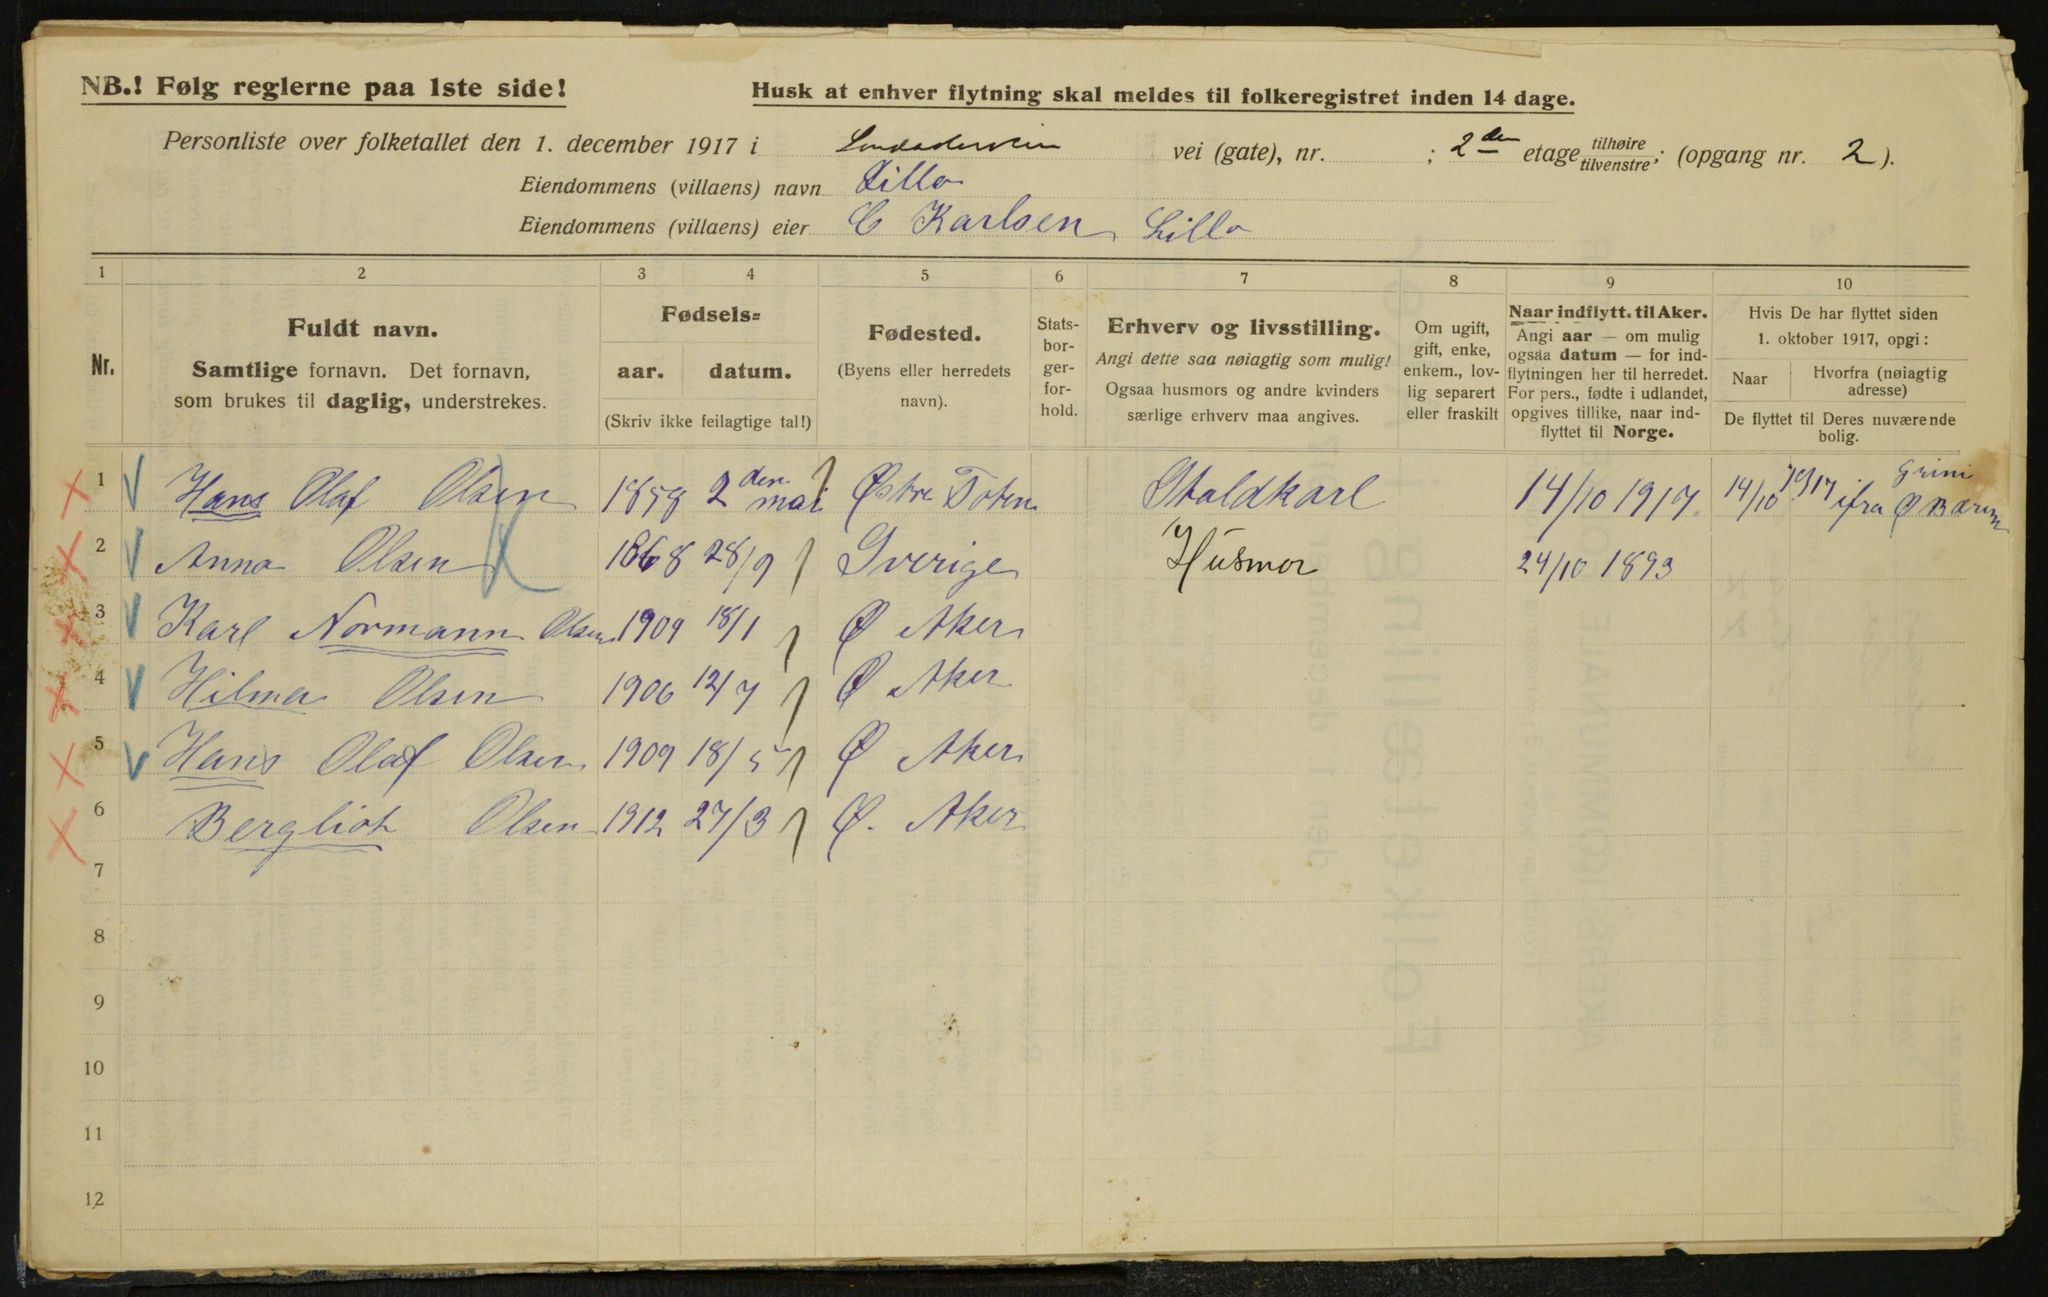 NB.! Følg reglerne paa 1ste side!
Husk at enhver flytning skal meldes til folkeregistret inden 14 dage.
Personliste over folketallet den 1. december 1917 i vei (gate), nr. ; 2den etage tilhøire tilvenstre; (opgang nr. 2).
Eiendommens (villaens) navn Lillo
Eiendommens (villaens) eier C Karlsen Lillo
1 2 3 4 5 6 7 8 9 10
Nr.
Fuldt navn.
Samtlige fornavn. Det fornavn,
som brukes til daglig, understrekes.
Fødsels=
aar. datum.
(Skriv ikke feilagtige tal!)
Fødested.
(Byens eller herredets
navn).
Stats-
bor-
ger-
for-
hold.
Erhverv og livsstilling.
Angi dette saa nøiagtig som mulig!
Ogsaa husmors og andre kvinders
særlige erhverv maa angives.
Om ugift,
gift, enke,
enkem., lov-
lig separert
eller fraskilt
Naar indflytt. til Aker.
Angi aar — om mulig
ogsaa datum — for ind-
flytningen her til herredet.
For pers., fødte i udlandet,
opgives tillike, naar ind-
flyttet til Norge.
Hvis De har flyttet siden
1. oktober 1917, opgi:
Naar
Hvorfra (nøiagtig
adresse)
De flyttet til Deres nuværende
bolig.
1 Hans Olaf Olsen 1858 2den mai Østre Toten Staldkarl 14/10 1917 14/10 1917 ifra Grini Ø Bærum
2 Anna Olsen 1868 28/9 Sverige Husmor 24/10 1893
3 Karl Normann Olsen 1909 18/1 Ø Aker
4 Hilma Olsen 1906 12/7 Ø Aker
5 Hans Olaf Olsen 1909 18/5 Ø Aker
6 Bergliot Olsen 1912 27/3 Ø. Aker
7
8
9
10
11
12